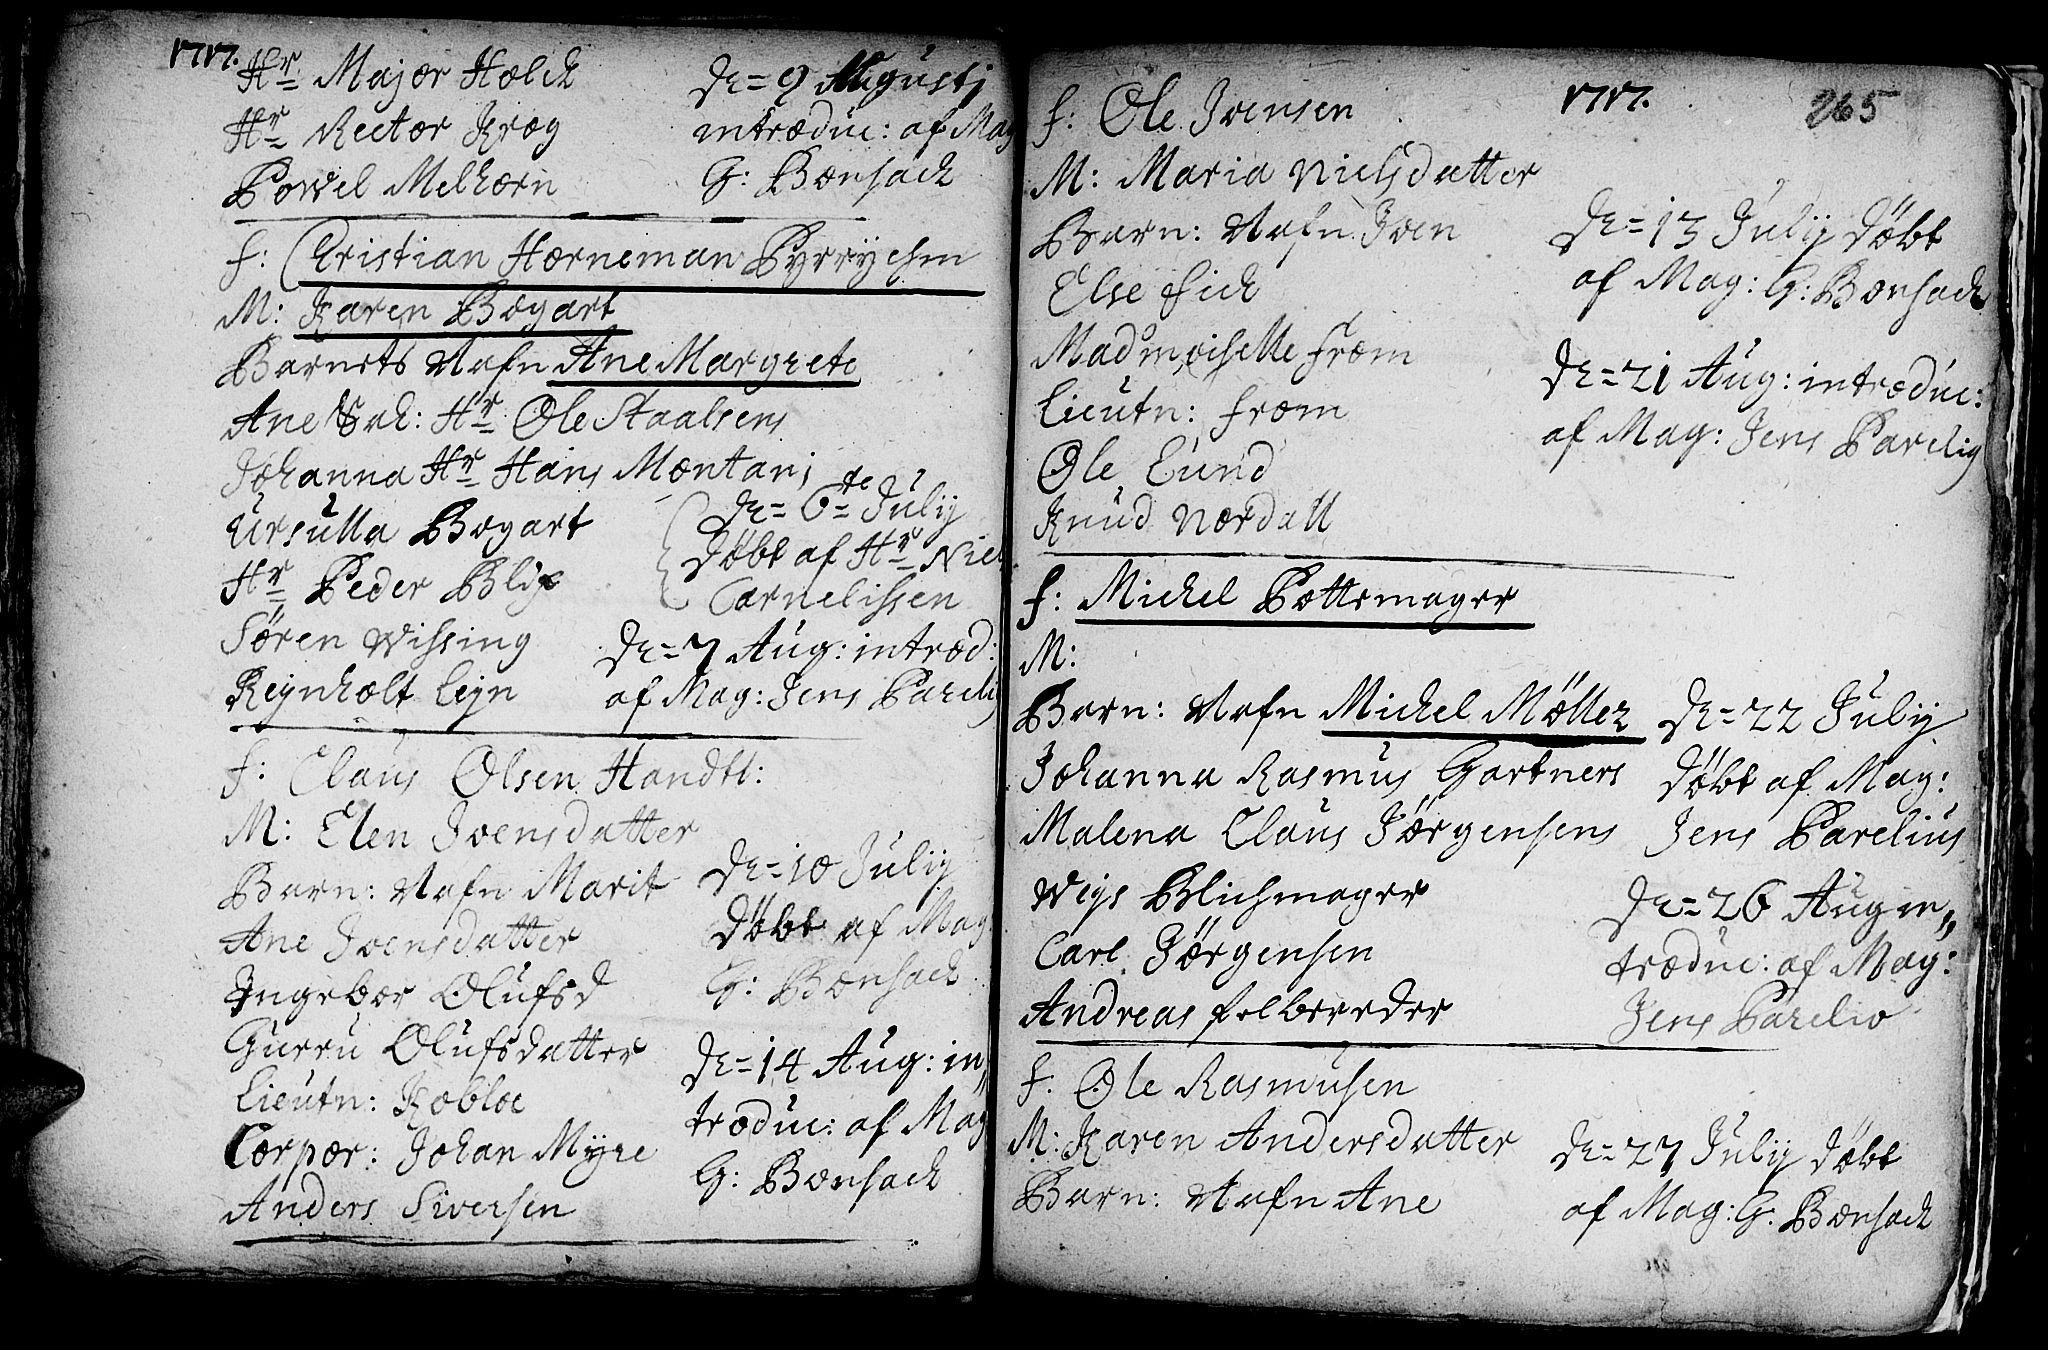 1717.
Hr Major Holck
Hr Rector Krog
Powel Melhorn
De= 9 Augustj
introduc: af Mag
G: Bonsach
f: Christian Horneman Byrrychm
M: Karen Bogart
Barnets Nafn Ane Margrete
Ane Hr Ole Staalsens
Johanna Hr Hans Montanj
Ursulla Bogart
Hr Peder Blix
Sören Wissing
Reynholt Leyn
De= 6te Julij
Döbt af Hr Niel
Cornelissen
De= 7 Aug: introd:
af Mag: Jens Pareli
f: Claus Olsen Handtl:
M: Elen Joensdatter
Barn: Nafn Marit
Ane Joensdatter
Ingebor Olufsd
Gurru Olufsdatter
Lieutn: Kobloe
Corpor: Johan Myre
Anders Siversen
De= 10 Julij
Döbt af Mag
G: Bonsach
De= 14 Aug: in,,
troduc: af Mag
G: Bonsach
1717.
265
f: Ole Joensen
M: Maria Nielsdatter
Barn: Nafn Joen
Else Fick
Madmoiselle From
Lieutn: From
Ole Lund
Knud Nordall
De= 13 Julij Döbt
af Mag: G: Bonsach
De= 21 Aug: introduc:
af Mag: Jens Parelig
f: Michel Pottemager
M:
Barn: Nafn Michel Möller
Johanna Rasmus Gartners
Malena Claus Jörgensens
Weys Blichmager
Carl Jörgensen
Andreas Felbereder
De= 22 Julij
Döbt af Mag:
Jens Parelius
De= 26 Aug in,,
troduc: af Mag:
Jens Parelio
f: Ole Rasmusen
M: Karen Andersdatter
Barn: Nafn Ane
De= 27 Julij Döbt
af Mag: G: Bonsach